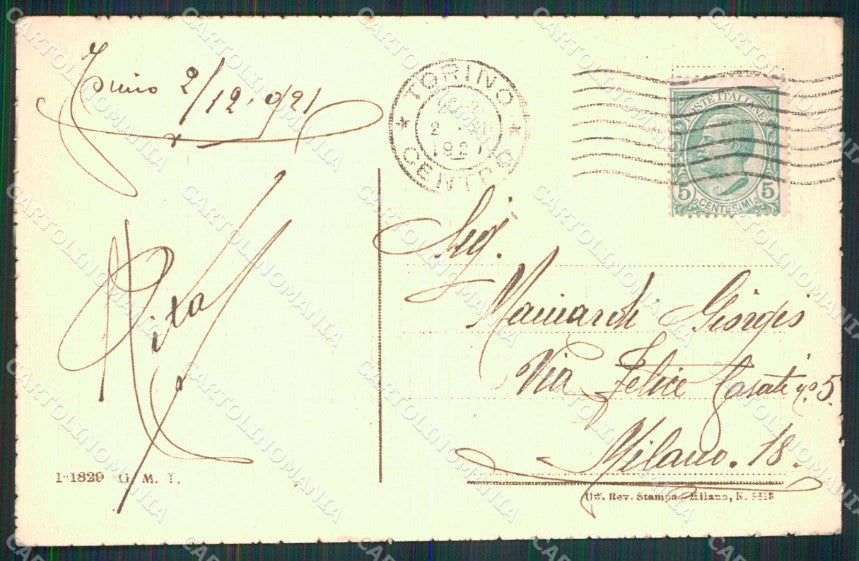 Torino 2/12.921
TORINO
2
1921
CENTRO
POSTE ITALIANE
5 5
CENTESIMI
Sig.
Mainardi Giorgio
Via Felice Casati nº 5.
Milano. 18.
Rita
1-1829 G. M. I.
Uff. Rev. Stampa - Milano, N.
CARTOLINOMANIA